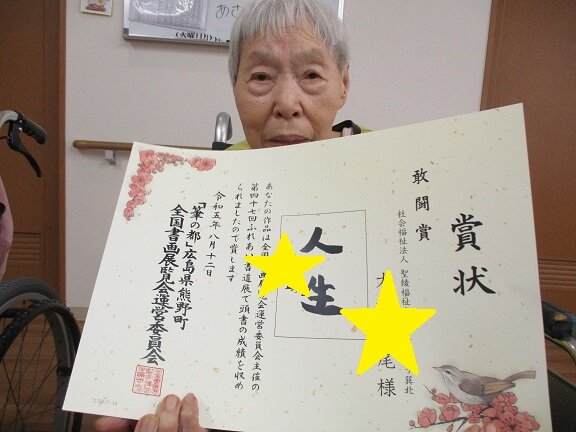 賞状
敢闘賞
社会福祉法人 聖綾福祉
巽北
尾 様
人生
あなたの作品は全国書画展覧会運営委員会主催の
第四十七回ふれあい書道展で頭書の成績を収め
られましたので賞します
令和五年八月十二日
「筆の都」広島県熊野町
全国書画展覧会運営委員会
あさ
(火曜日)